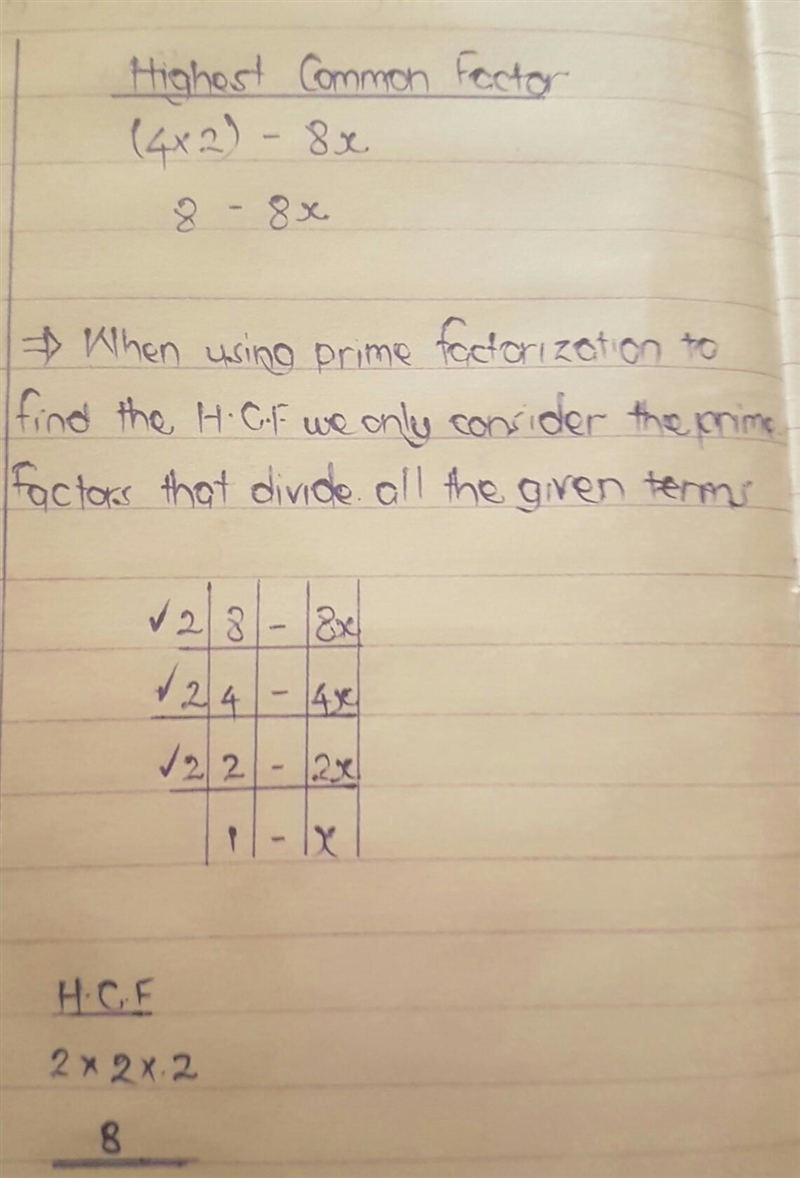 Highest Common Factor
(4×2) - 8x
8 - 8x
⇒ When using prime factorization to
find the H.C.F we only consider the prime
factors that divide all the given terms
✓2 | 8 | - | 8x
✓2 | 4 | - | 4x
✓2 | 2 | - | 2x
1 | - | x
H.C.F
2 × 2 × 2
8